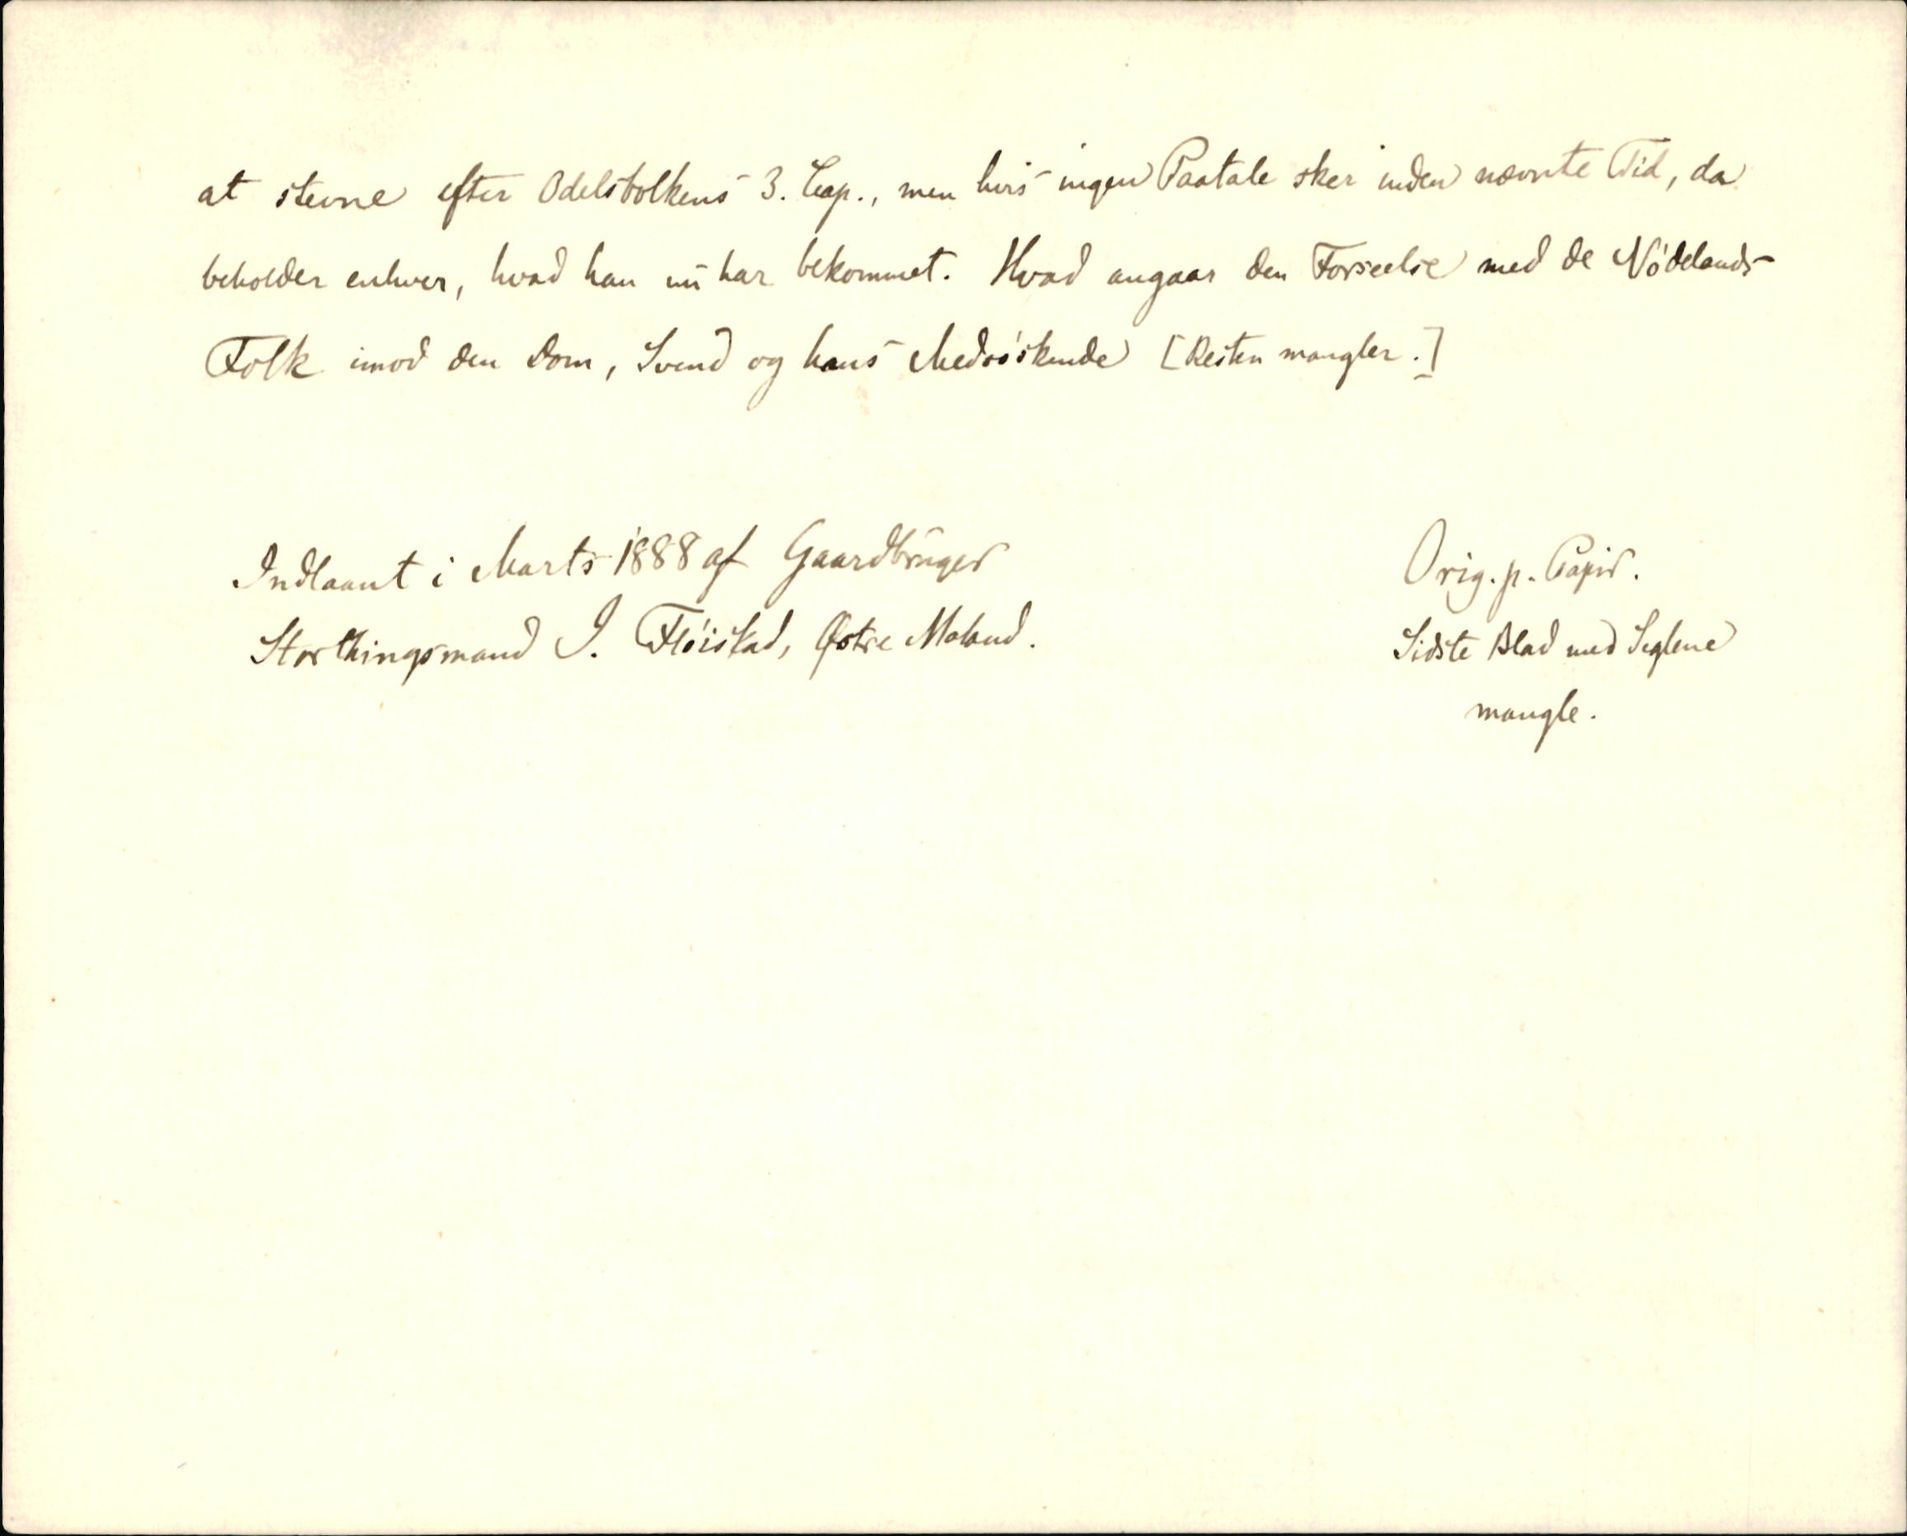 at stevne efter Odelsbolkens 3. Cap., men hvis ingen Paatale sker inden nævnte Tid, da
beholder enhver, hvad han nu har bekommet. Hvad angaar den Forseelse med de Nödelands-
Folk imod den Dom, Svend og hans Medsöskende [Resten mangler.]
Indlaant i Marts 1888 af Gaardbruger
Storthingsmand J. Flöistad, Østre Moland.
Orig. p. Papir.
Sidste Blad med Seglene
mangle.